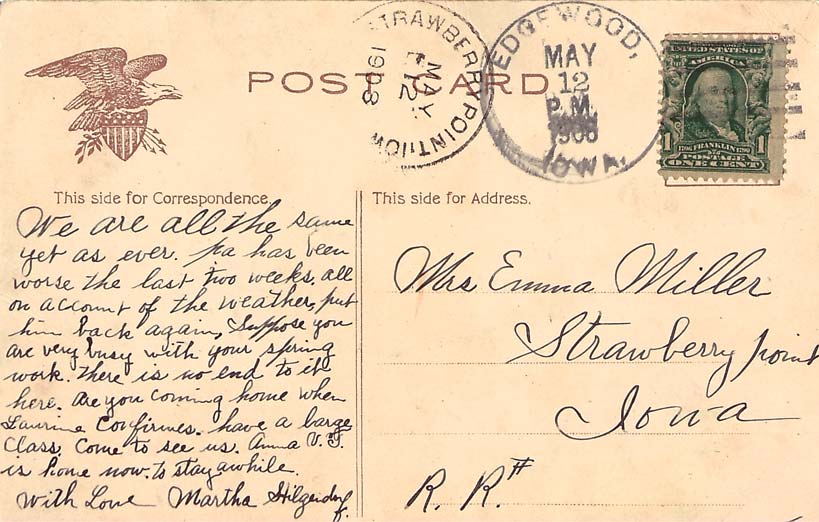 POST CARD
STRAWBERRY POINT, IOW
MAY
12
1908
EDGEWOOD,
MAY
12
P.M.
1908
IOWA.
UNITED STATES OF
AMERICA
1 1706 FRANKLIN 1790 1
POSTAGE
ONE CENT
This side for Correspondence.
We are all the same
yet as ever. Pa has been
worse the last two weeks. all
on account of the weather, put
him back again, Suppose you
are very busy with your spring
work. There is no end to it
here. Are you coming home when
Laurine Confirmes. have a large
Class. Come to see us. Anna V. T.
is home now. to stay awhile.
With Love Martha Hilgendorf.
This side for Address.
Mrs Emma Miller
Strawberry point
Iowa
R. R. #